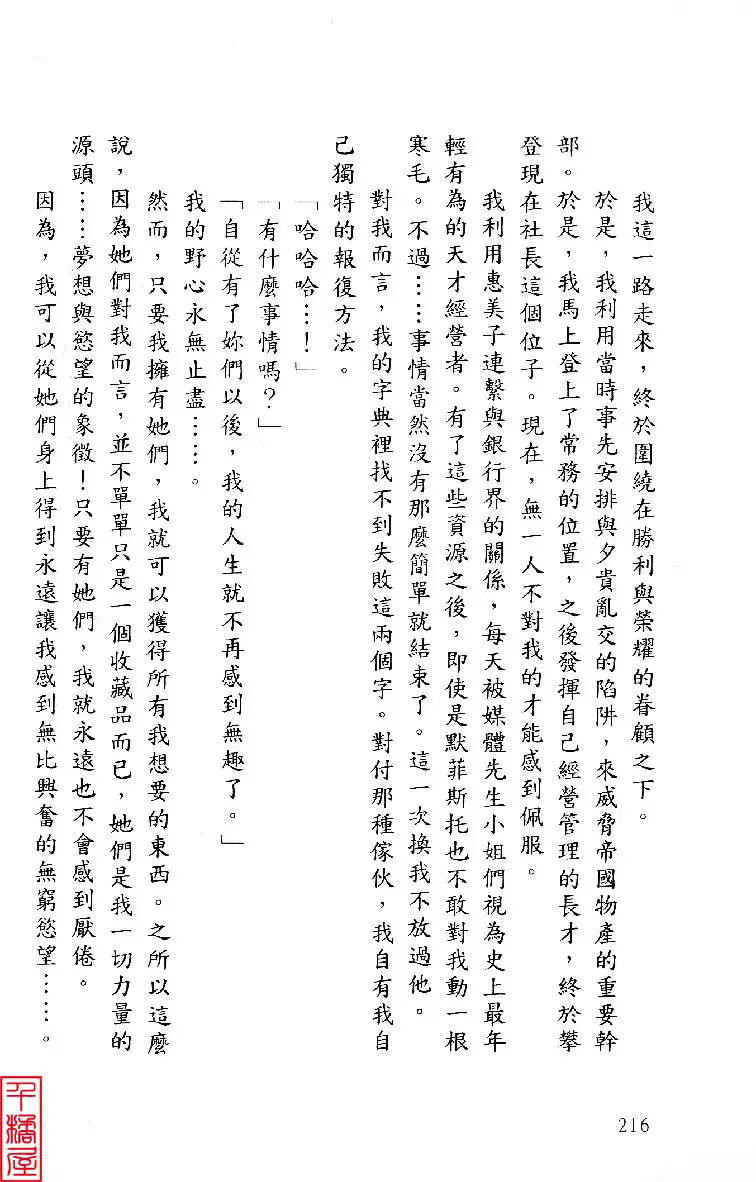 我這一路走來，終於圍繞在勝利與榮耀的眷顧之下。
於是，我利用當時事先安排與夕貴亂交的陷阱，來威脅帝國物產的重要幹
部。於是，我馬上登上了常務的位置，之後發揮自己經營管理的長才，終於攀
登現在社長這個位子。現在，無一人不對我的才能感到佩服。
我利用惠美子連繫與銀行界的關係，每天被媒體先生小姐們視為史上最年
輕有為的天才經營者。有了這些資源之後，即使是默菲斯托也不敢對我動一根
寒毛。不過……事情當然沒有那麼簡單就結束了。這一次換我不放過他。
對我而言，我的字典裡找不到失敗這兩個字。對付那種傢伙，我自有我自
己獨特的報復方法。
「哈哈哈…！」
「有什麼事情嗎？」
「自從有了妳們以後，我的人生就不再感到無趣了。」
我的野心永無止盡……。
然而，只要我擁有她們，我就可以獲得所有我想要的東西。之所以這麼
說，因為她們對我而言，並不單單只是一個收藏品而已，她們是我一切力量的
源頭……夢想與慾望的象徵！只要有她們，我就永遠也不會感到厭倦。
因為，我可以從她們身上得到永遠讓我感到無比興奮的無窮慾望……。
216
千橘屋